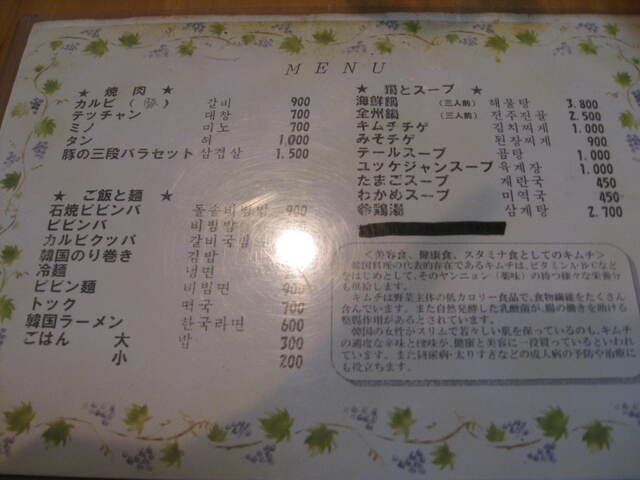 MENU
★ 焼 肉 ★
カルビ (豚) 갈비 900
テッチャン 대창 700
ミノ 미노 700
タン 혀 1,000
豚の三段バラセット 삼겹살 1.500
★ ご飯と麺 ★
石焼ビビンバ 돌솥비빔밥 900
ビビンバ 비빔밥
カルビクッパ 갈비국밥
韓国のり巻き 김밥
冷麺 냉면
ビビン麺 비빔면 900
トック 떡국 700
韓国ラーメン 한국라면 600
ごはん 大 밥 300
小 200
★ 鍋とスープ ★
海鮮鍋 (三人前) 해물탕 3.800
全州鍋 (三人前) 전주전골 2.500
キムチチゲ 김치찌게 1.000
みそチゲ 된장찌게 900
テールスープ 곰탕 1.000
ユッケジャンスープ 육계장 1.000
たまごスープ 계란국 450
わかめスープ 미역국 450
参鶏湯 삼계탕 2.700
<美容食、健康食、スタミナ食としてのキムチ>
韓国料理の代表的存在であるキムチは、ビタミンA・B・Cなど
をはじめとして、そのヤンニョン(薬味)の持つ様々な栄養分
も継給します。
キムチは野菜主体の低カロリー食品で、食物繊維をたくさん
含んでいます。また自然発酵した乳酸菌が、腸の働きを助ける
整腸作用があるとされています。
韓国の女性がスリムで若々しい肌を保っているのも、キムチ
の適度な辛味と酸味が、健康と美容に一役買っているといわれ
ています。また糖尿病・太りすぎなどの成人病の予防や治療に
も役立ちます。